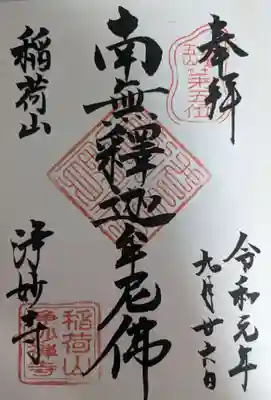 奉拝
五山第五位
令和元年
九月廿六日
南無釋迦牟尼佛
稲荷山
浄妙寺
稲荷山
浄妙禅寺